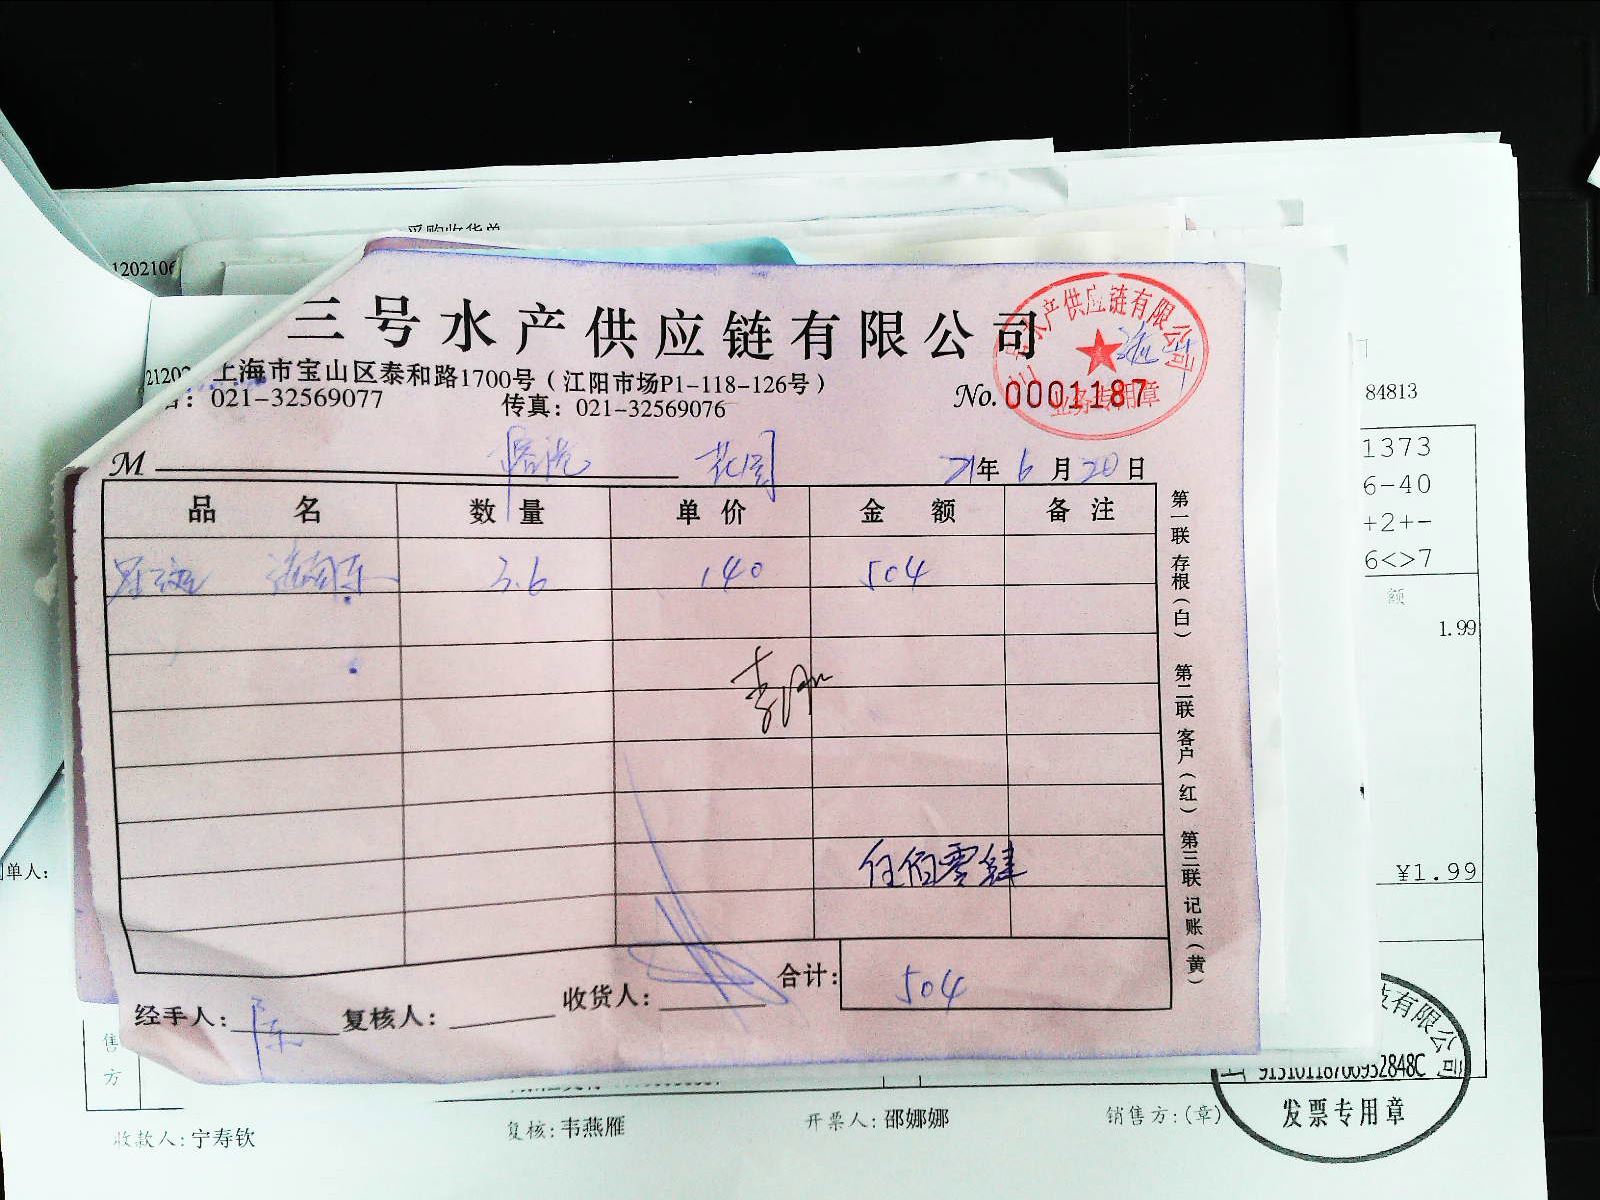 采购收货单
1202106
三号水产供应链有限公司
水产供应链有限公司
业务专用章
21202
上海市宝山区泰和路1700号（江阳市场P1-118-126号）
021-32569077 传真：021-32569076
No. 0001187
M 花园 21年6月20日
品名 数量 单价 金额 备注
3.6 140 504
伍佰零肆
合计： 504
经手人： 陈 复核人： 收货人：
第一联 存根（白） 第二联 客户（红） 第三联 记账（黄）
84813
1373
6-40
+2+-
6<>7
额
1.99
¥1.99
单人：
售方
有限公司
发票专用章
收款人：宁寿钦 复核：韦燕雁 开票人：邵娜娜 销售方：（章）